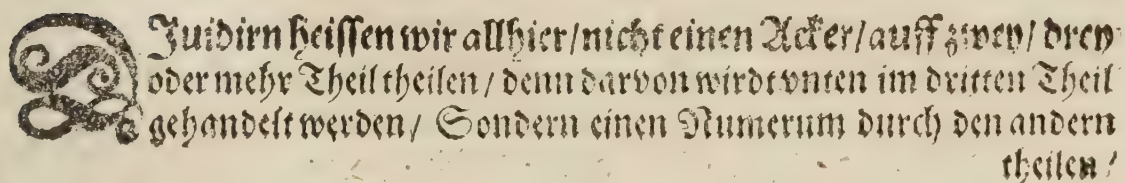 Diuidirn heissen wir allhier/nicht einen Acker/auff zwey/drey
oder mehr Theil theilen/denn darvon wirdt vnten im dritten Theil
gehandelt werden/ Sondern einen Numerum durch den andern
theilen/